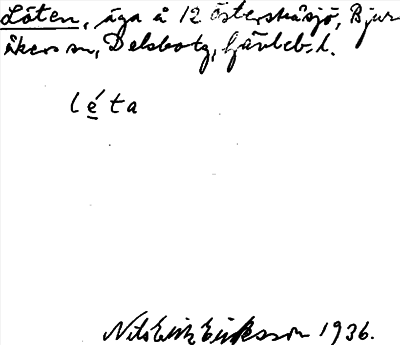 Löten, äga å 12 österskåsjö, Bjur-
åkers sn, Delsbo tg, Gävleb. l.
léta
Nils Erik Eriksson 1936.